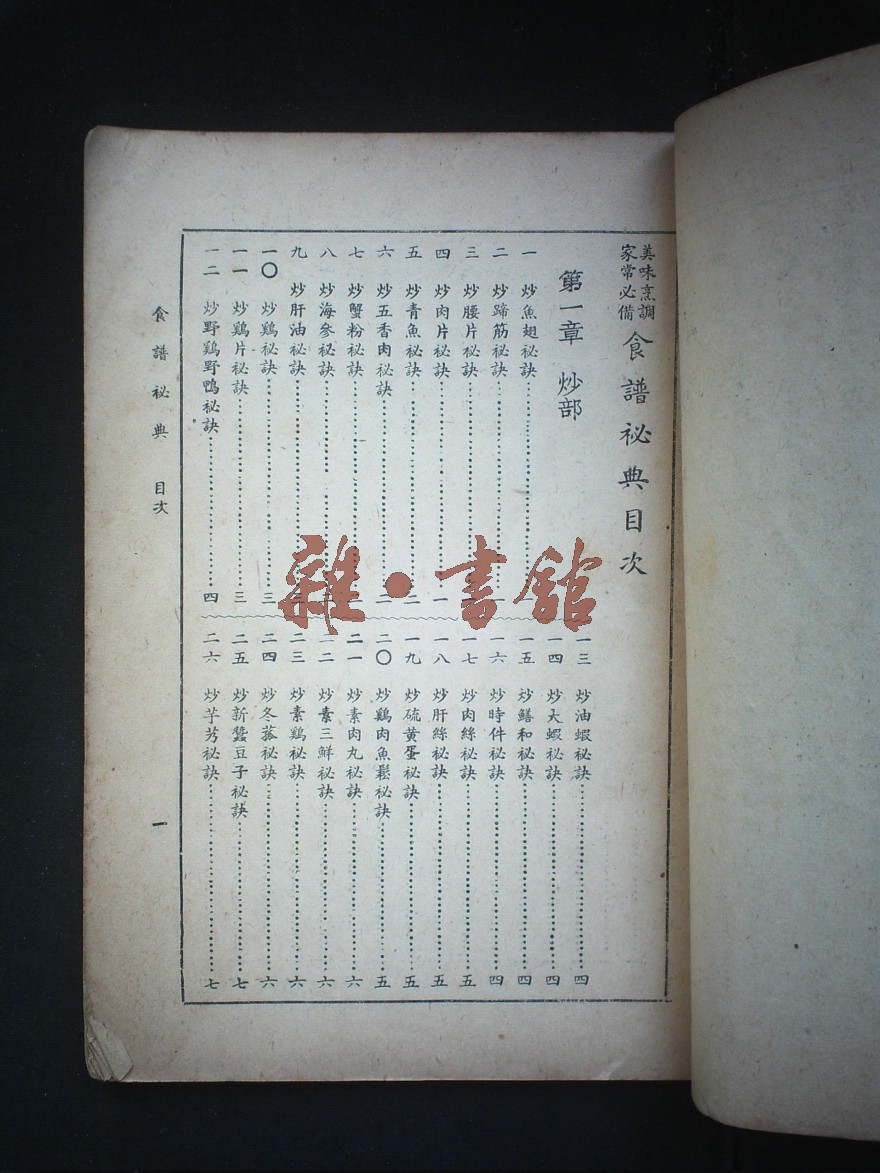 美味烹調
家常必備
食譜祕典目次
第一章 炒部
一 炒魚翅祕訣
二 炒蹄筋祕訣
三 炒腰片祕訣
四 炒肉片祕訣 一
五 炒青魚祕訣 二
六 炒五香肉祕訣 二
七 炒蟹粉祕訣
八 炒海參祕訣
九 炒肝油祕訣
一〇 炒鷄祕訣 三
一一 炒鷄片祕訣 三
一二 炒野鷄野鴨祕訣 四
一三 炒油蝦祕訣 四
一四 炒大蝦祕訣 四
一五 炒鱔和祕訣 四
一六 炒時件祕訣 四
一七 炒肉絲祕訣 五
一八 炒肝絲祕訣 五
一九 炒硫黃蛋祕訣 五
二〇 炒鷄肉魚鬆祕訣 五
二一 炒素肉丸祕訣 六
二二 炒素三鮮祕訣 六
二三 炒素鷄祕訣 六
二四 炒冬菰祕訣 六
二五 炒新蠶豆子祕訣 七
二六 炒芋艿祕訣 七
食譜祕典 目次 一
雜·書館